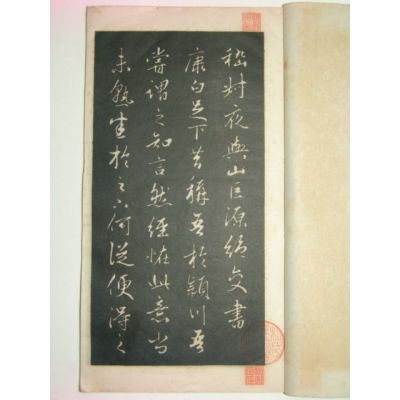 嵇叔夜與山巨源絕交書
康白足下昔稱吾於潁川吾
嘗謂之知言然經恠此意尚
未熟悉於足下何從便得之